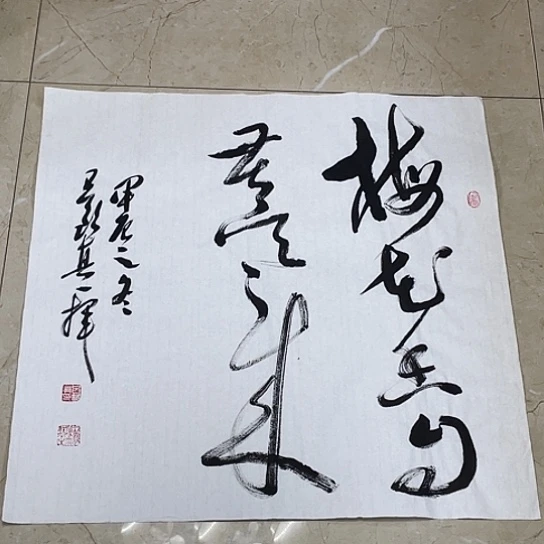 梅花香自
苦寒来
甲辰之冬
真一挥